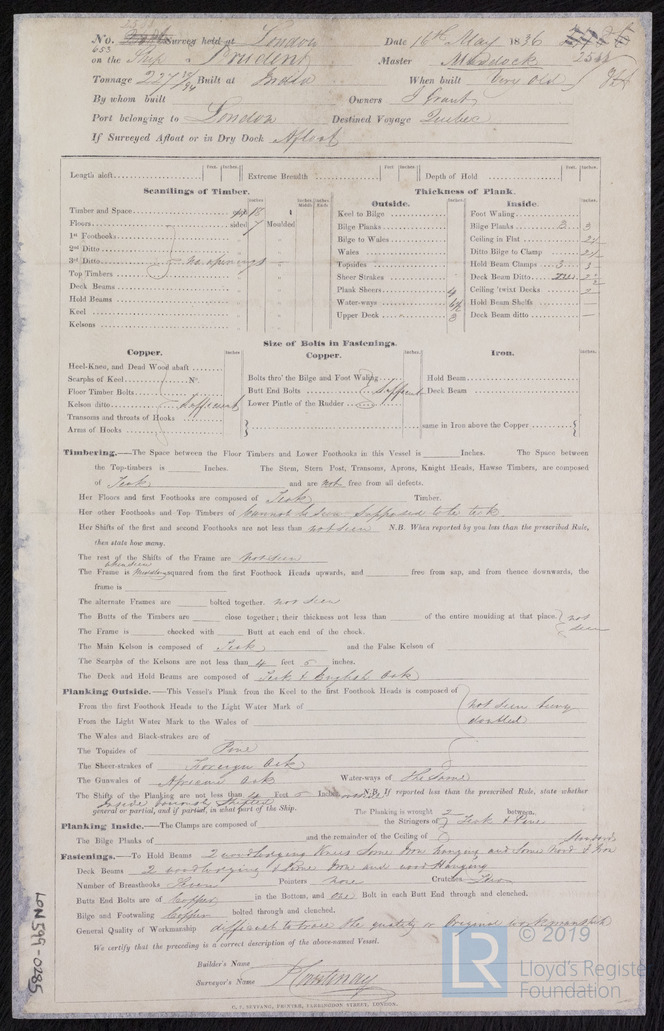 No. Survey held at London Date 16th May 1836
653
on the Ship Prudent Master Murdock
Tonnage 227 Built at India When built Very Old
By whom built Owners J Grant
Port belonging to London Destined Voyage Quebec
If Surveyed Afloat or in Dry Dock Afloat
Length aloft Feet. Inches. Extreme Breadth Feet Inches. Depth of Hold Feet. Inches.
Scantlings of Timber. Thickness of Plank.
Outside. Inside.
Timber and Space Keel to Bilge Foot Waling
Floors sided 7 Moulded Bilge Planks Bilge Planks 3
1st Foothooks Bilge to Wales Ceiling in Flat
2nd Ditto Wales Ditto Bilge to Clamp
3rd Ditto no openings Topsides Hold Beam Clamps 3
Top Timbers Sheer Strakes Deck Beam Ditto
Deck Beams Plank Sheers 4 Ceiling 'twixt Decks
Hold Beams Water-ways Hold Beam Shelfs
Keel Upper Deck 3 Deck Beam ditto
Kelsons
Size of Bolts in Fastenings.
Copper. Copper. Iron.
Heel-Knee, and Dead Wood shaft
Scarphs of Keel No. Bolts thro' the Bilge and Foot Waling Hold Beam
Floor Timber Bolts Butt End Bolts Sufficient Deck Beam
Kelson ditto Sufficient Lower Pintle of the Rudder
Transoms and throats of Hooks
Arms of Hooks same in Iron above the Copper
Timbering.—The Space between the Floor Timbers and Lower Foothooks in this Vessel is Inches. The Space between
the Top-timbers is Inches. The Stem, Stern Post, Transoms, Aprons, Knight Heads, Hawse Timbers, are composed
of Teak and are not free from all defects.
Her Floors and first Foothooks are composed of Teak Timber.
Her other Foothooks and Top Timbers of Cannot be seen Supposed to be teak.
Her Shifts of the first and second Foothooks are not less than not seen N.B. When reported by you less than the prescribed Rule,
then state how many.
The rest of the Shifts of the Frame are Not seen
The Frame is squared from the first Foothook Heads upwards, and free from sap, and from thence downwards, the
frame is
The alternate Frames are bolted together. not seen
The Butts of the Timbers are close together; their thickness not less than of the entire moulding at that place. not
The Frame is checked with Butt at each end of the chock. seen
The Main Kelson is composed of Teak and the False Kelson of
The Scarphs of the Kelsons are not less than 4 feet 5 inches.
The Deck and Hold Beams are composed of Teak & English Oak
Planking Outside.—This Vessel's Plank from the Keel to the first Foothook Heads is composed of
From the first Foothook Heads to the Light Water Mark of not seen being
From the Light Water Mark to the Wales of doubled
The Wales and Black-strakes are of
The Topsides of Pine
The Sheer-strakes of Foreign Oak
The Gunwales of African Oak Water-ways of The Same
The Shifts of the Planking are not less than 4 Feet 5 Inches N.B. If reported less than the prescribed Rule, state whether
general or partial, and if partial, in what part of the Ship. The Planking is wrought 2 between.
Planking Inside.—The Clamps are composed of the Stringers of Teak & Pine
The Bilge Planks of and the remainder of the Ceiling of
Fastenings.—To Hold Beams 2 wood lodging Knees Some Iron hanging and Some Wood & Iron
Deck Beams 2 wood lodging & Some Iron and wood Hanging
Number of Breasthooks Three Pointers None Crutches
Butts End Bolts are of Copper in the Bottom, and One Bolt in each Butt End through and clenched.
Bilge and Footwaling Copper bolted through and clenched.
General Quality of Workmanship difficult to trace the quality or Original workmanship
We certify that the preceding is a correct description of the above-named Vessel.
Builder's Name
Surveyor's Name P Courtenay
C. F. SEYFANG, PRINTER, FARRINGDON STREET, LONDON.
LON 599-0285
LR © 2019
Lloyd's Register
Foundation